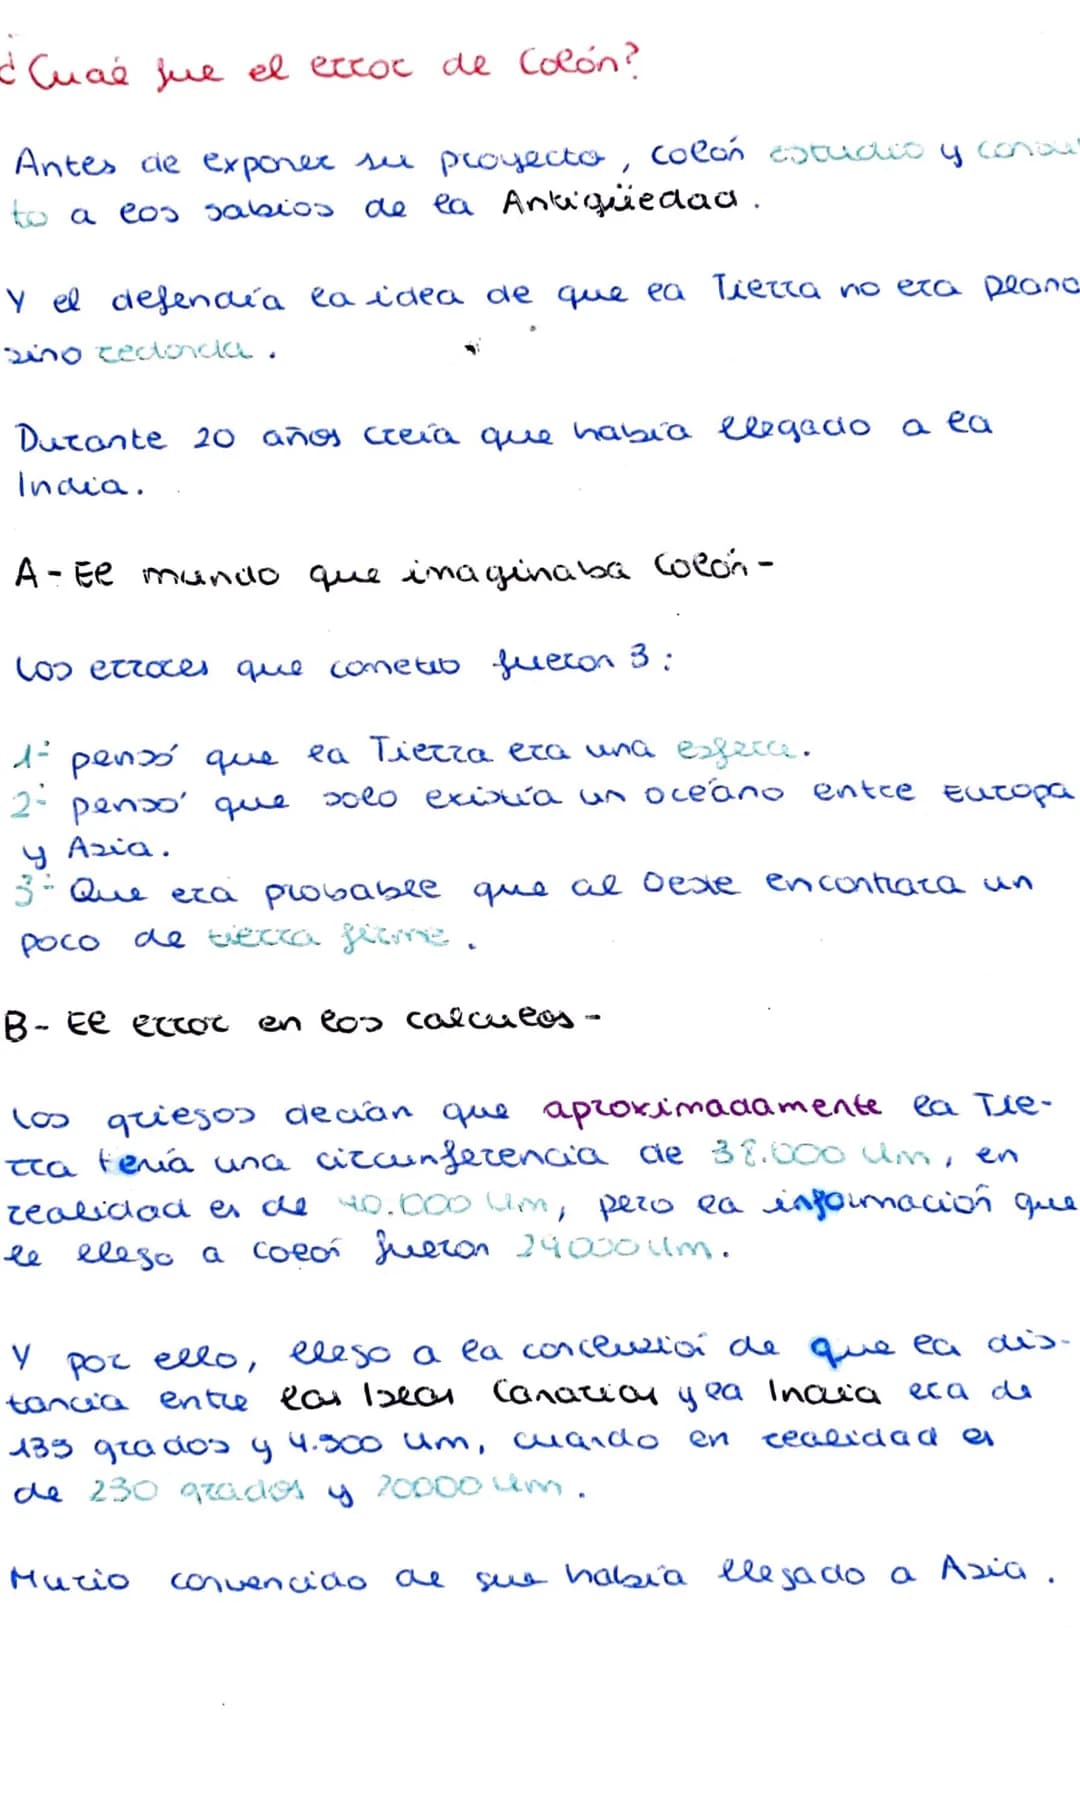 ¿Cuál fue el error de Colón?
Antes de exponer su proyecto, Colón estudio y consul
to a los sabios de la Antigüedad.
Y el defendía la idea de que la Tierra no era plana
sino redonda.
Durante 20 años creía que había llegado a la
India.
A- El mundo que imaginaba Colón-
Los errores que cometio fueron 3:
1- pensó que la Tierra era una esfera.
2- pensó que solo existía un océano entre Europa
y Asia.
3- Que era probable que al Oeste encontrara un
poco de tierra firme.
B- El error en los calculos-
Los griegos decían que aproximadamente la Tie-
rra tenía una circunferencia de 38.000 Km, en
realidad es de 40.000 Km, pero la información que
le llego a Colón fueron 24000 Km.
Y por ello, llego a la conclusión de que la dis-
tancia entre las Islas Canarias y la India era de
135 grados y 4.500 Km, cuando en realidad es
de 230 grados y 20000 Km.
Murio convencido de que había llegado a Asia.